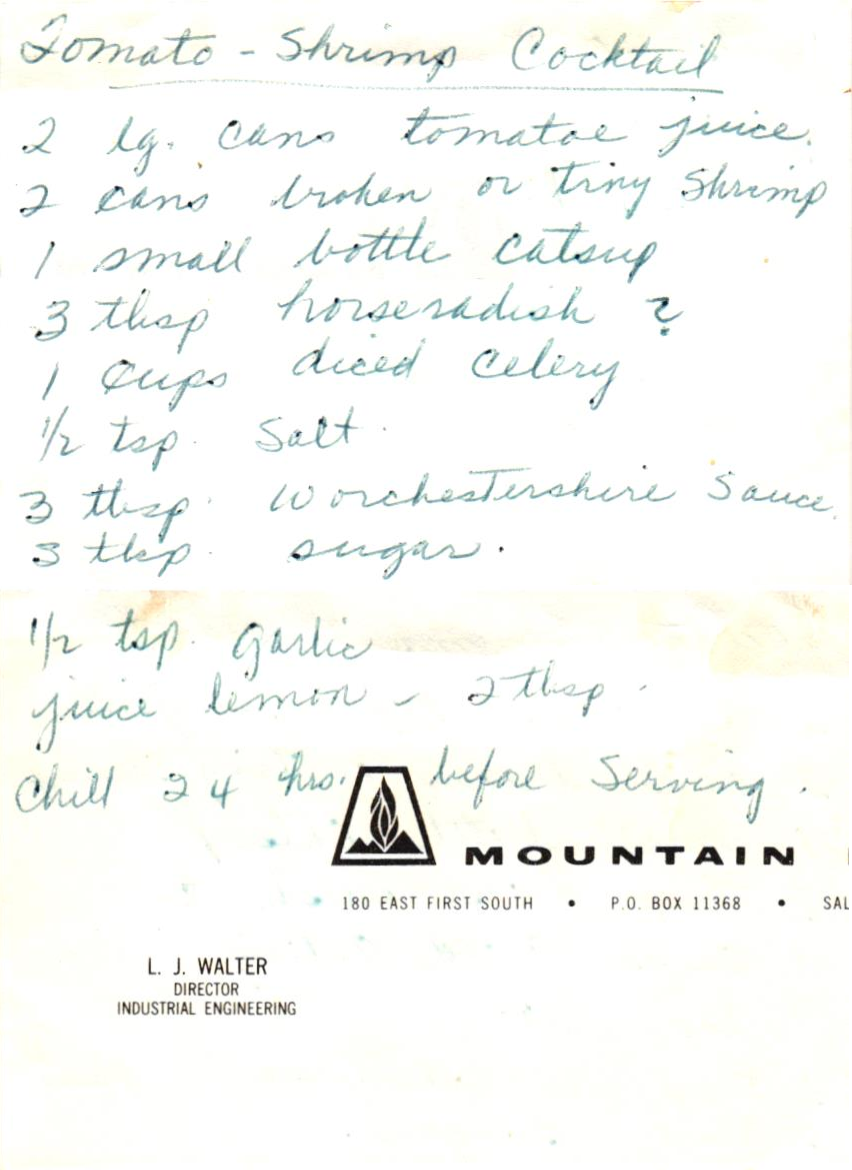 Tomato - Shrimp Cocktail
2 lg. cans tomatoe juice.
2 cans broken or tiny Shrimp
1 small bottle catsup
3 tbsp horseradish ?
1 cups diced celery
1/2 tsp. Salt.
3 tbsp. Worchestershire Sauce.
3 tbsp. sugar.
1/2 tsp. garlic
juice lemon - 2 tbsp.
Chill 24 hrs. before Serving.
MOUNTAIN
180 EAST FIRST SOUTH • P.O. BOX 11368 • SAL
L. J. WALTER
DIRECTOR
INDUSTRIAL ENGINEERING